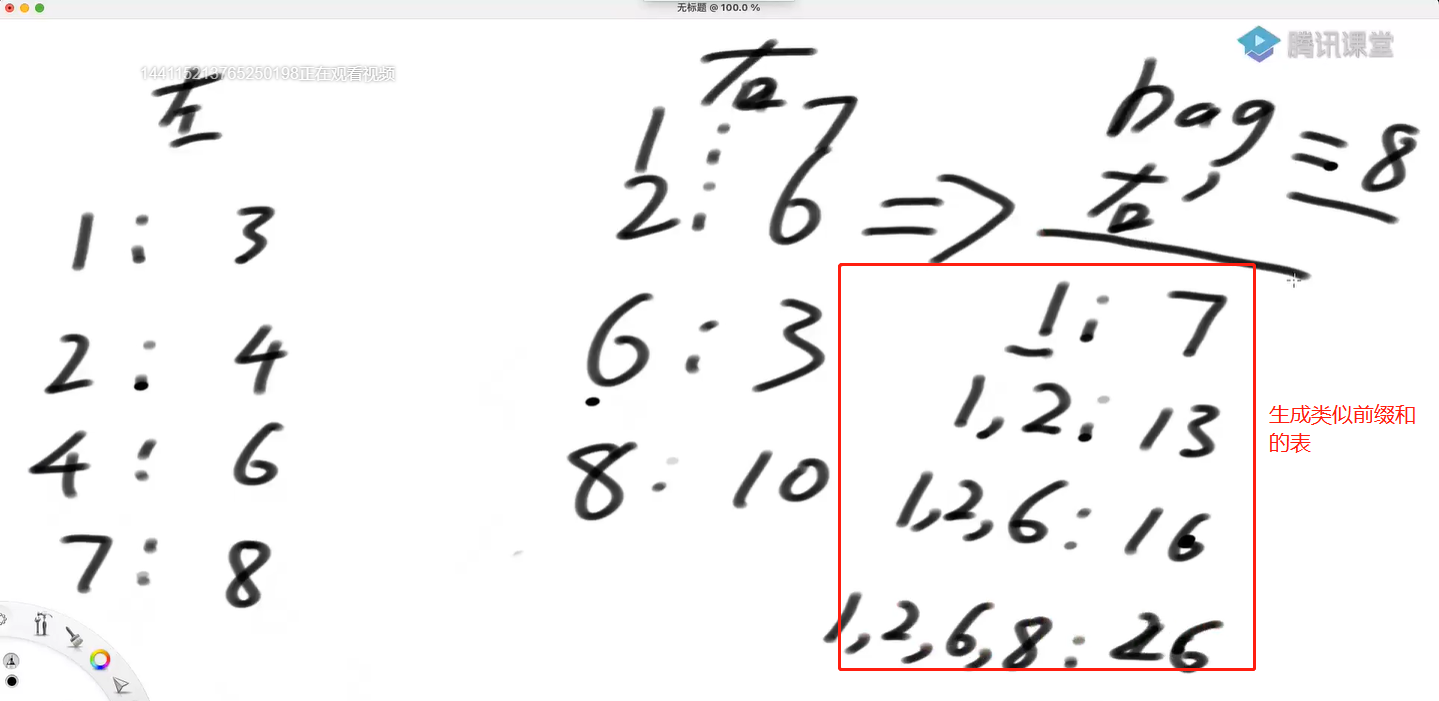 无标题 @ 100.0 %
腾讯课堂
144115213765250198正在观看视频
左
1 : 3
2 : 4
4 : 6
7 : 8
右
1 : 7
2 : 6
6 : 3
8 : 10
=>
bag = 8
右'
1 : 7
1,2 : 13
1,2,6 : 16
1,2,6,8 : 26
生成类似前缀和
的表